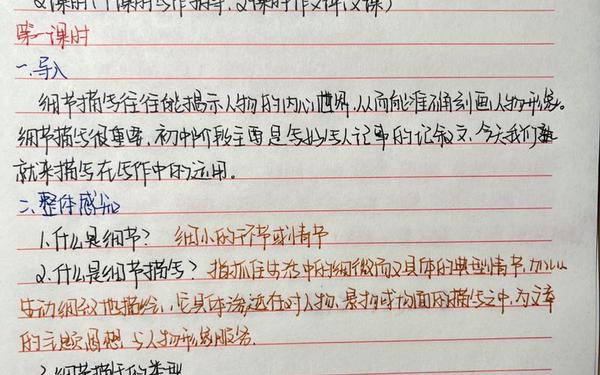 2课时(1课时写作指导,2课时作文评议课)
第一课时
一.导入
细节描写往往能揭示人物的内心世界,从而能准确刻画人物形象。
细节描写很重要,初中阶段主要是写好写人记事的记叙文,今天我们
就来描写在写作中的运用。
二、整体感知
1.什么是细节?细小的环节或情节
2.什么是细节描写?指抓住生活中的细微而又具体的典型情节,加以
生动细致地描绘,它具体渗透在对人物、景物或场面的描写之中,为文章
的主题思想与人物形象服务.
3.细节描写的类型